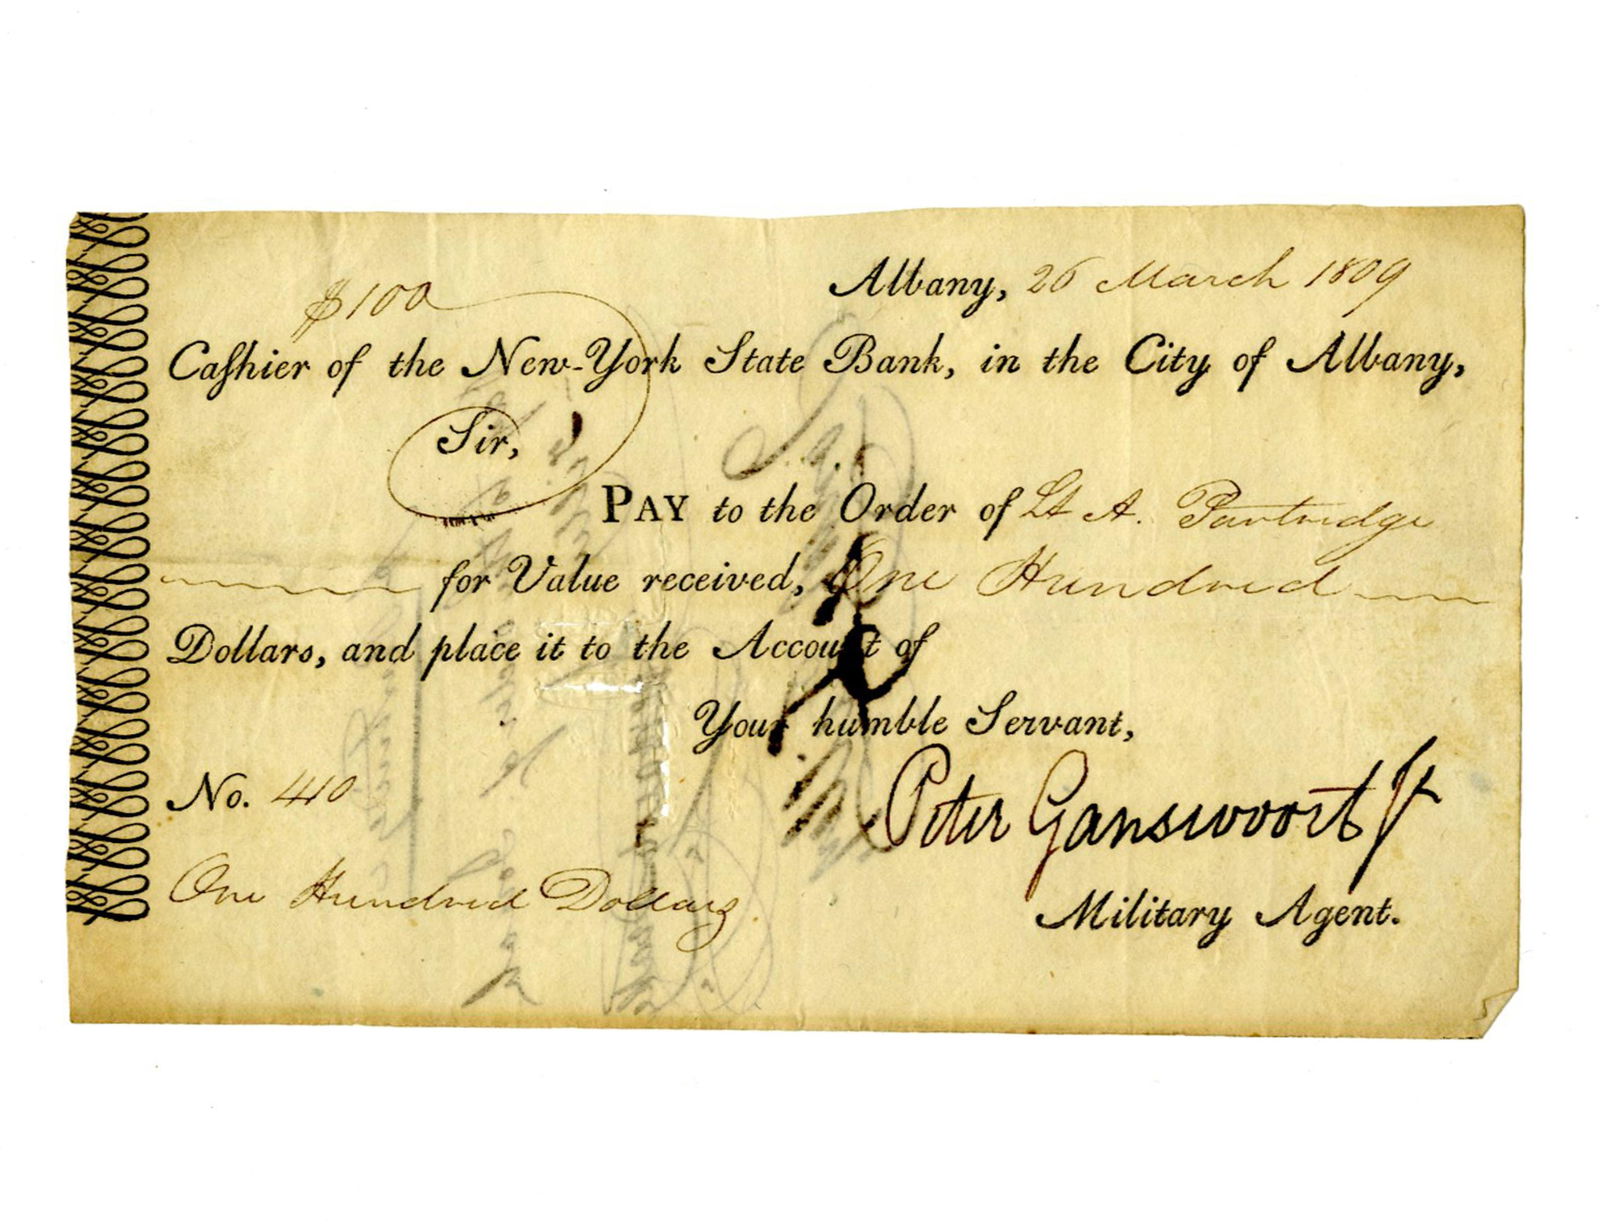 Albany, 26 March 1809
$100
Caſhier of the New-York State Bank, in the City of Albany,
Sir,
PAY to the Order of Lt A. Partridge
for Value received, One Hundred
Dollars, and place it to the Account of
Your humble Servant,
No. 410
Peter Gansevoort Jr
One Hundred Dollars.
Military Agent.